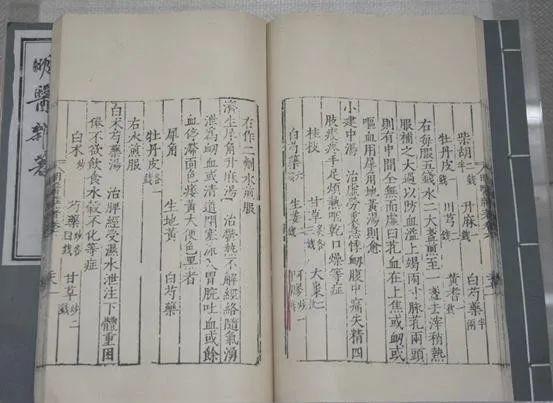 柴胡半錢 升麻半錢 白芍藥半
牡丹皮錢 川芎錢 黃耆錢
右每服五錢水二大盞煎至一盞去滓稍熱
服補之太過以防血溢上竭兩寸脈芤兩頭
則有中間全無而虛曰芤血在上焦或衂或
嘔血用犀角地黃湯則愈
小建中湯 治虛勞裏急悸衂腹中痛失精四
肢痠疼手足煩熱咽乾口燥等症
桂枝 甘草 大棗
白芍藥六 生姜 膠飴
右作二劑水煎服
濟生犀角升麻湯 治鬱熱不解經絡隨氣湧
泄為衂血或清道閉塞流入胃脘吐血或餘
血停滯面色痿黃大便色黑者
犀角 生地黃 白芍藥
牡丹皮錢
右水煎服
白朮芍藥湯 治脾經受濕水泄注下體重困
倦不欲飲食水穀不化等症
白朮 芍藥炒各四錢 甘草炒二錢
明醫雜著